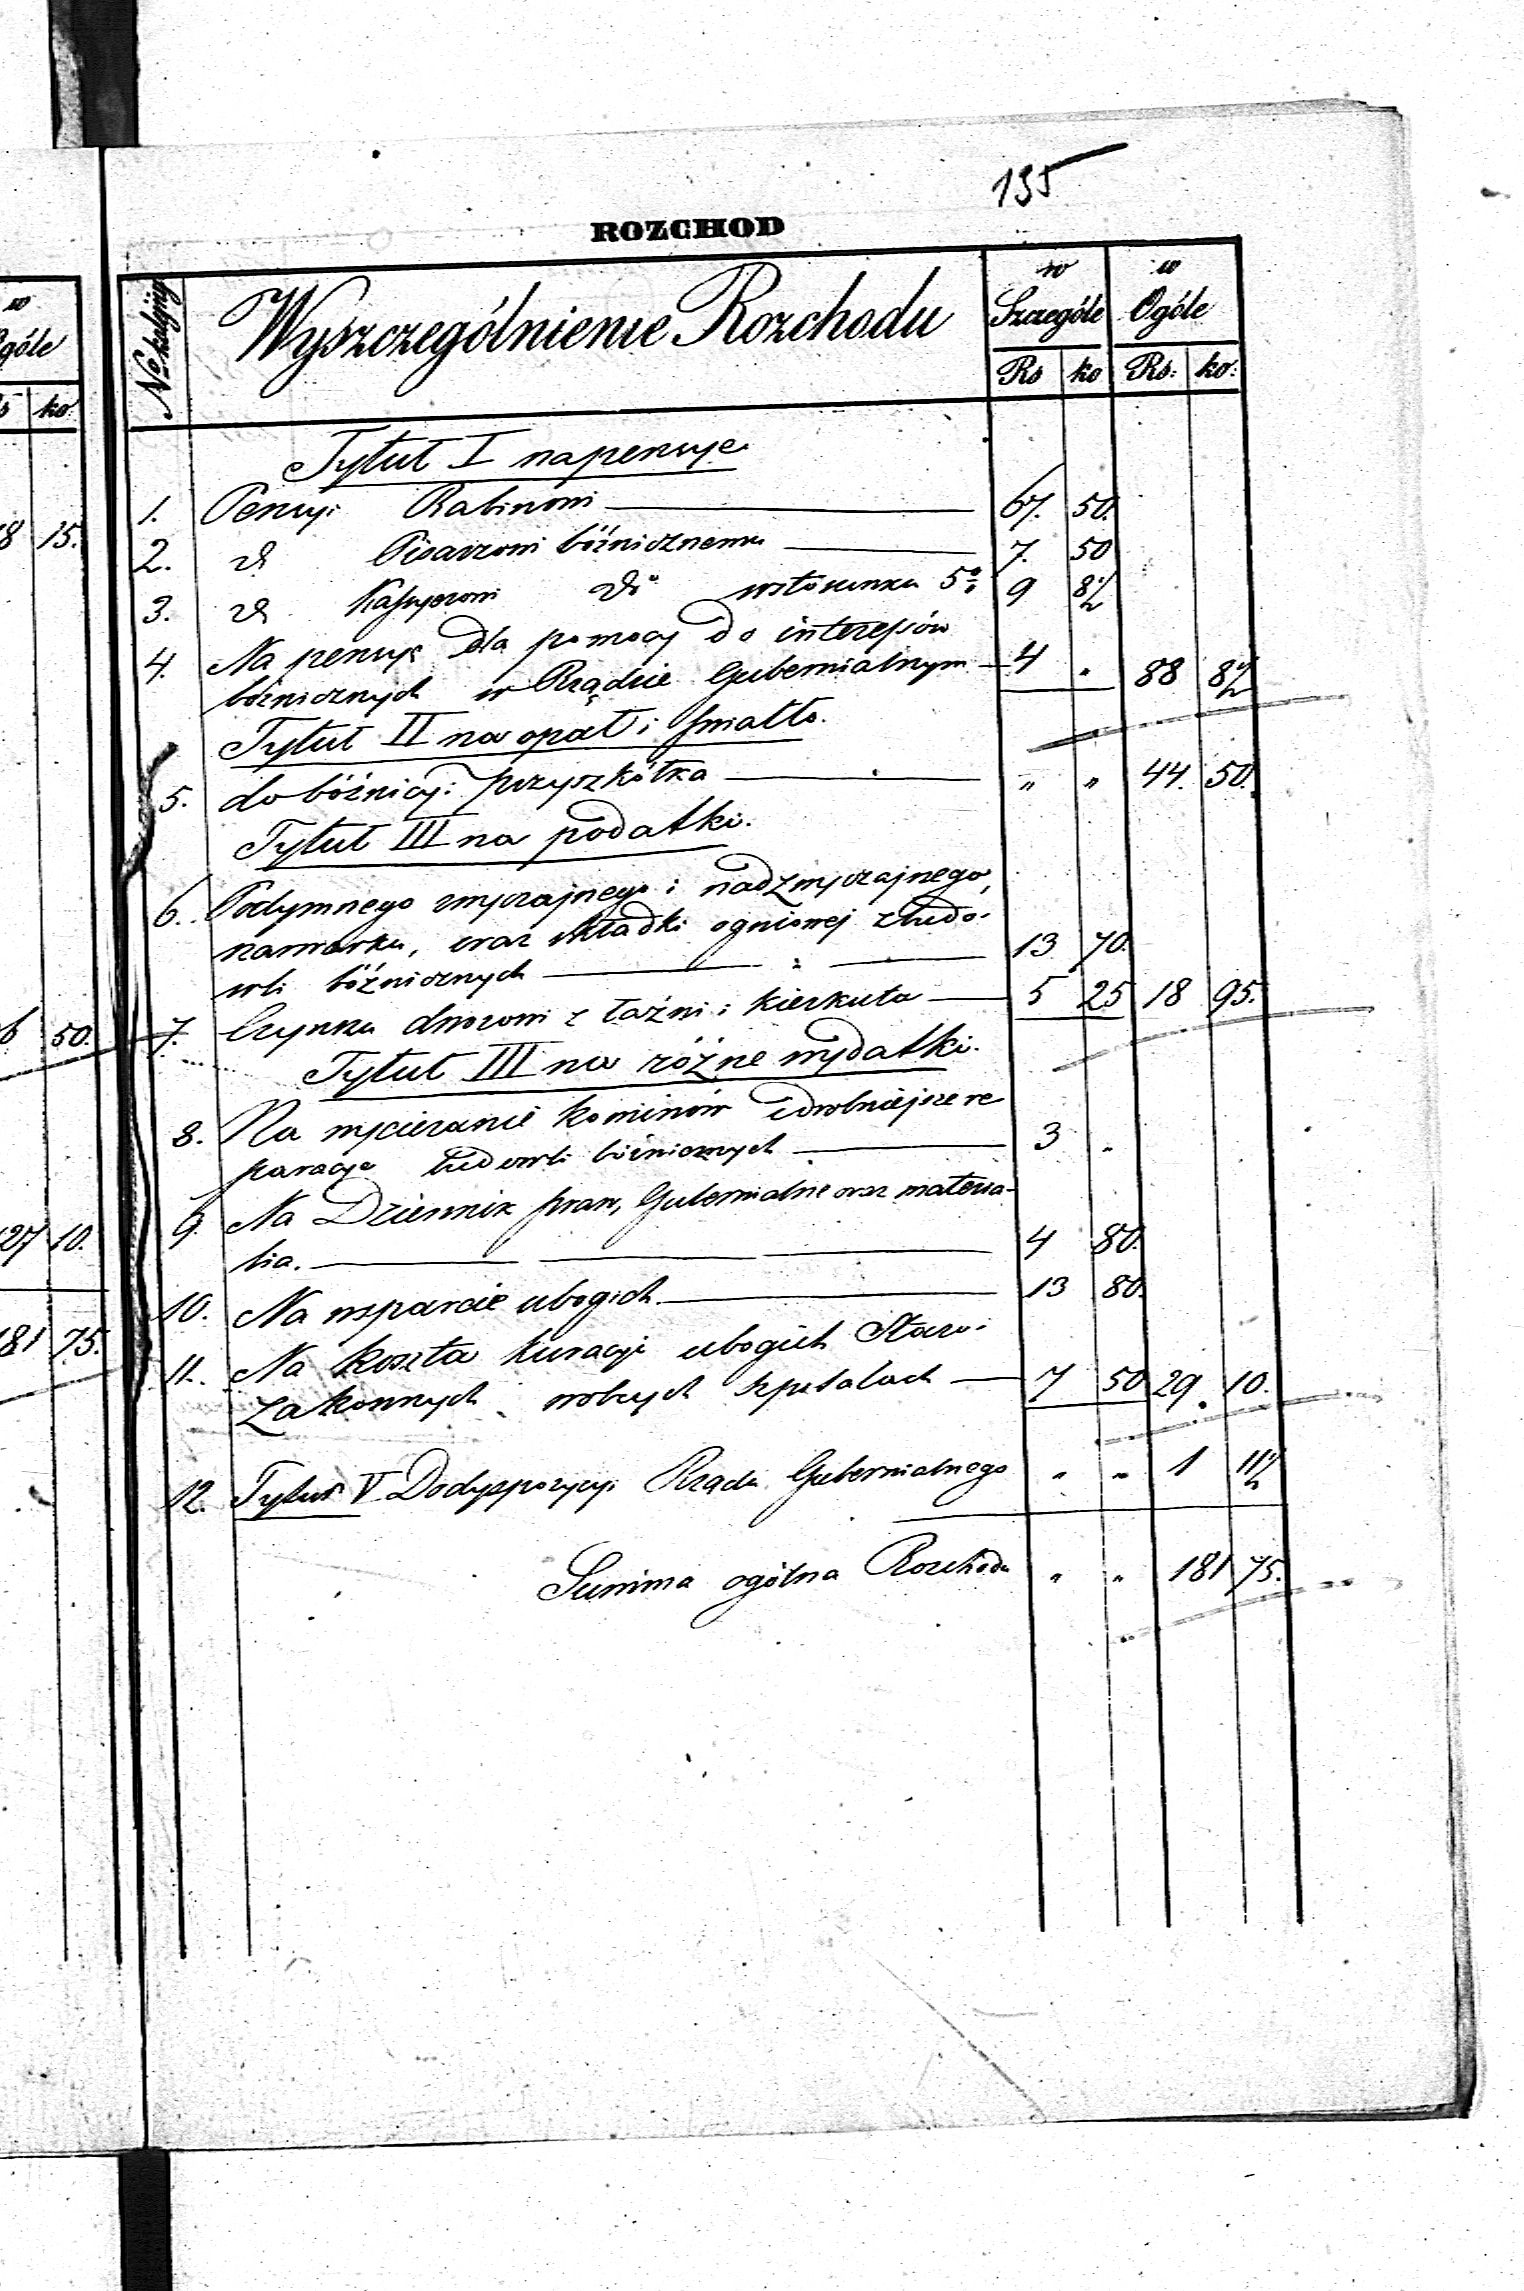 195
ROZCHOD
w
Ogóle
ko.
No kolejny
Wyszczególnienie Rozchodu
w Szczególe
w Ogóle
Rs ko Rs: ko:
Tytuł I na pensye
1. Pensyi Rabinowi 67. 50.
2. d Pisarzowi bóżnicznemu 7. 50
3. d Kassyerowi do w stosunku 5% 9 8½
4. Na pensye dla pomocy do interessów
bóżnicznych w Rządzie Gubernialnym 4 " 88 8½
Tytuł II na opał i światło.
5. do bóżnicy i przyszkółka " " 44. 50.
Tytuł III na podatki.
6. Podymnego zwyczajnego i nadzwyczajnego,
szarwarku, oraz składki ogniowej z budo-
wli bóżnicznych 13 70.
7. Czynszu dworowi z łaźni i kierkuta 5 25 18 95.
Tytuł III na różne wydatki.
8. Na wycieranie kominów i drobniejsze re
paracye budowli bóżnicznych 3 "
9. Na Dziennik praw, Gubernialne oraz materia-
lia. 4 80.
10. Na wsparcie ubogich. 13 80.
11. Na koszta kuracyi ubogich Staro-
zakonnych w obcych szpitalach 7 50 29. 10.
12. Tytuł V Do dyspozycyi Rządu Gubernialnego " " 1 11½
Summa ogólna Rozchodu " " 181 75.
8 15.
6 50.
127 10.
181 75.